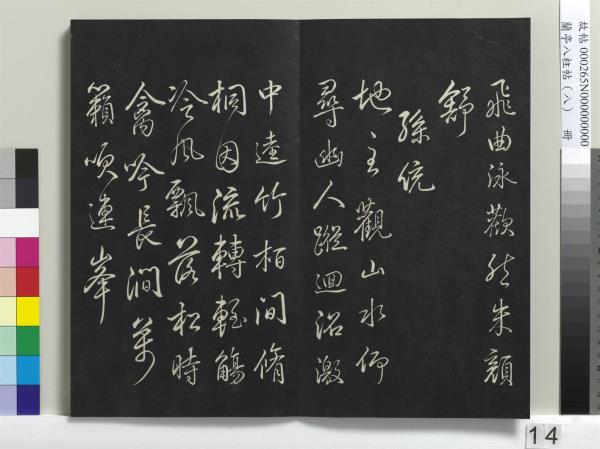 飛曲泳歡然朱顏
舒
孫統
地主觀山水仰
尋幽人蹤迴沼激
中逵竹柏間脩
桐因流轉輕觴
冷風飄落松時
禽吟長澗萬
籟吹連峯
故帖 000265N000000000
蘭亭八柱帖(八) 冊
14